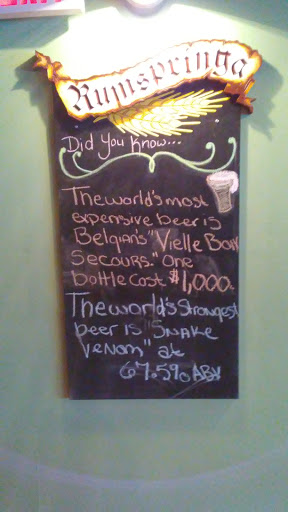 Rumspringa
Did You Know...
The world's most
expensive beer is
Belgian's "Vielle Bon
Secours." One
bottle cost $1,000.
The world's Strongest
beer is "Snake
Venom" at
67.5% ABV